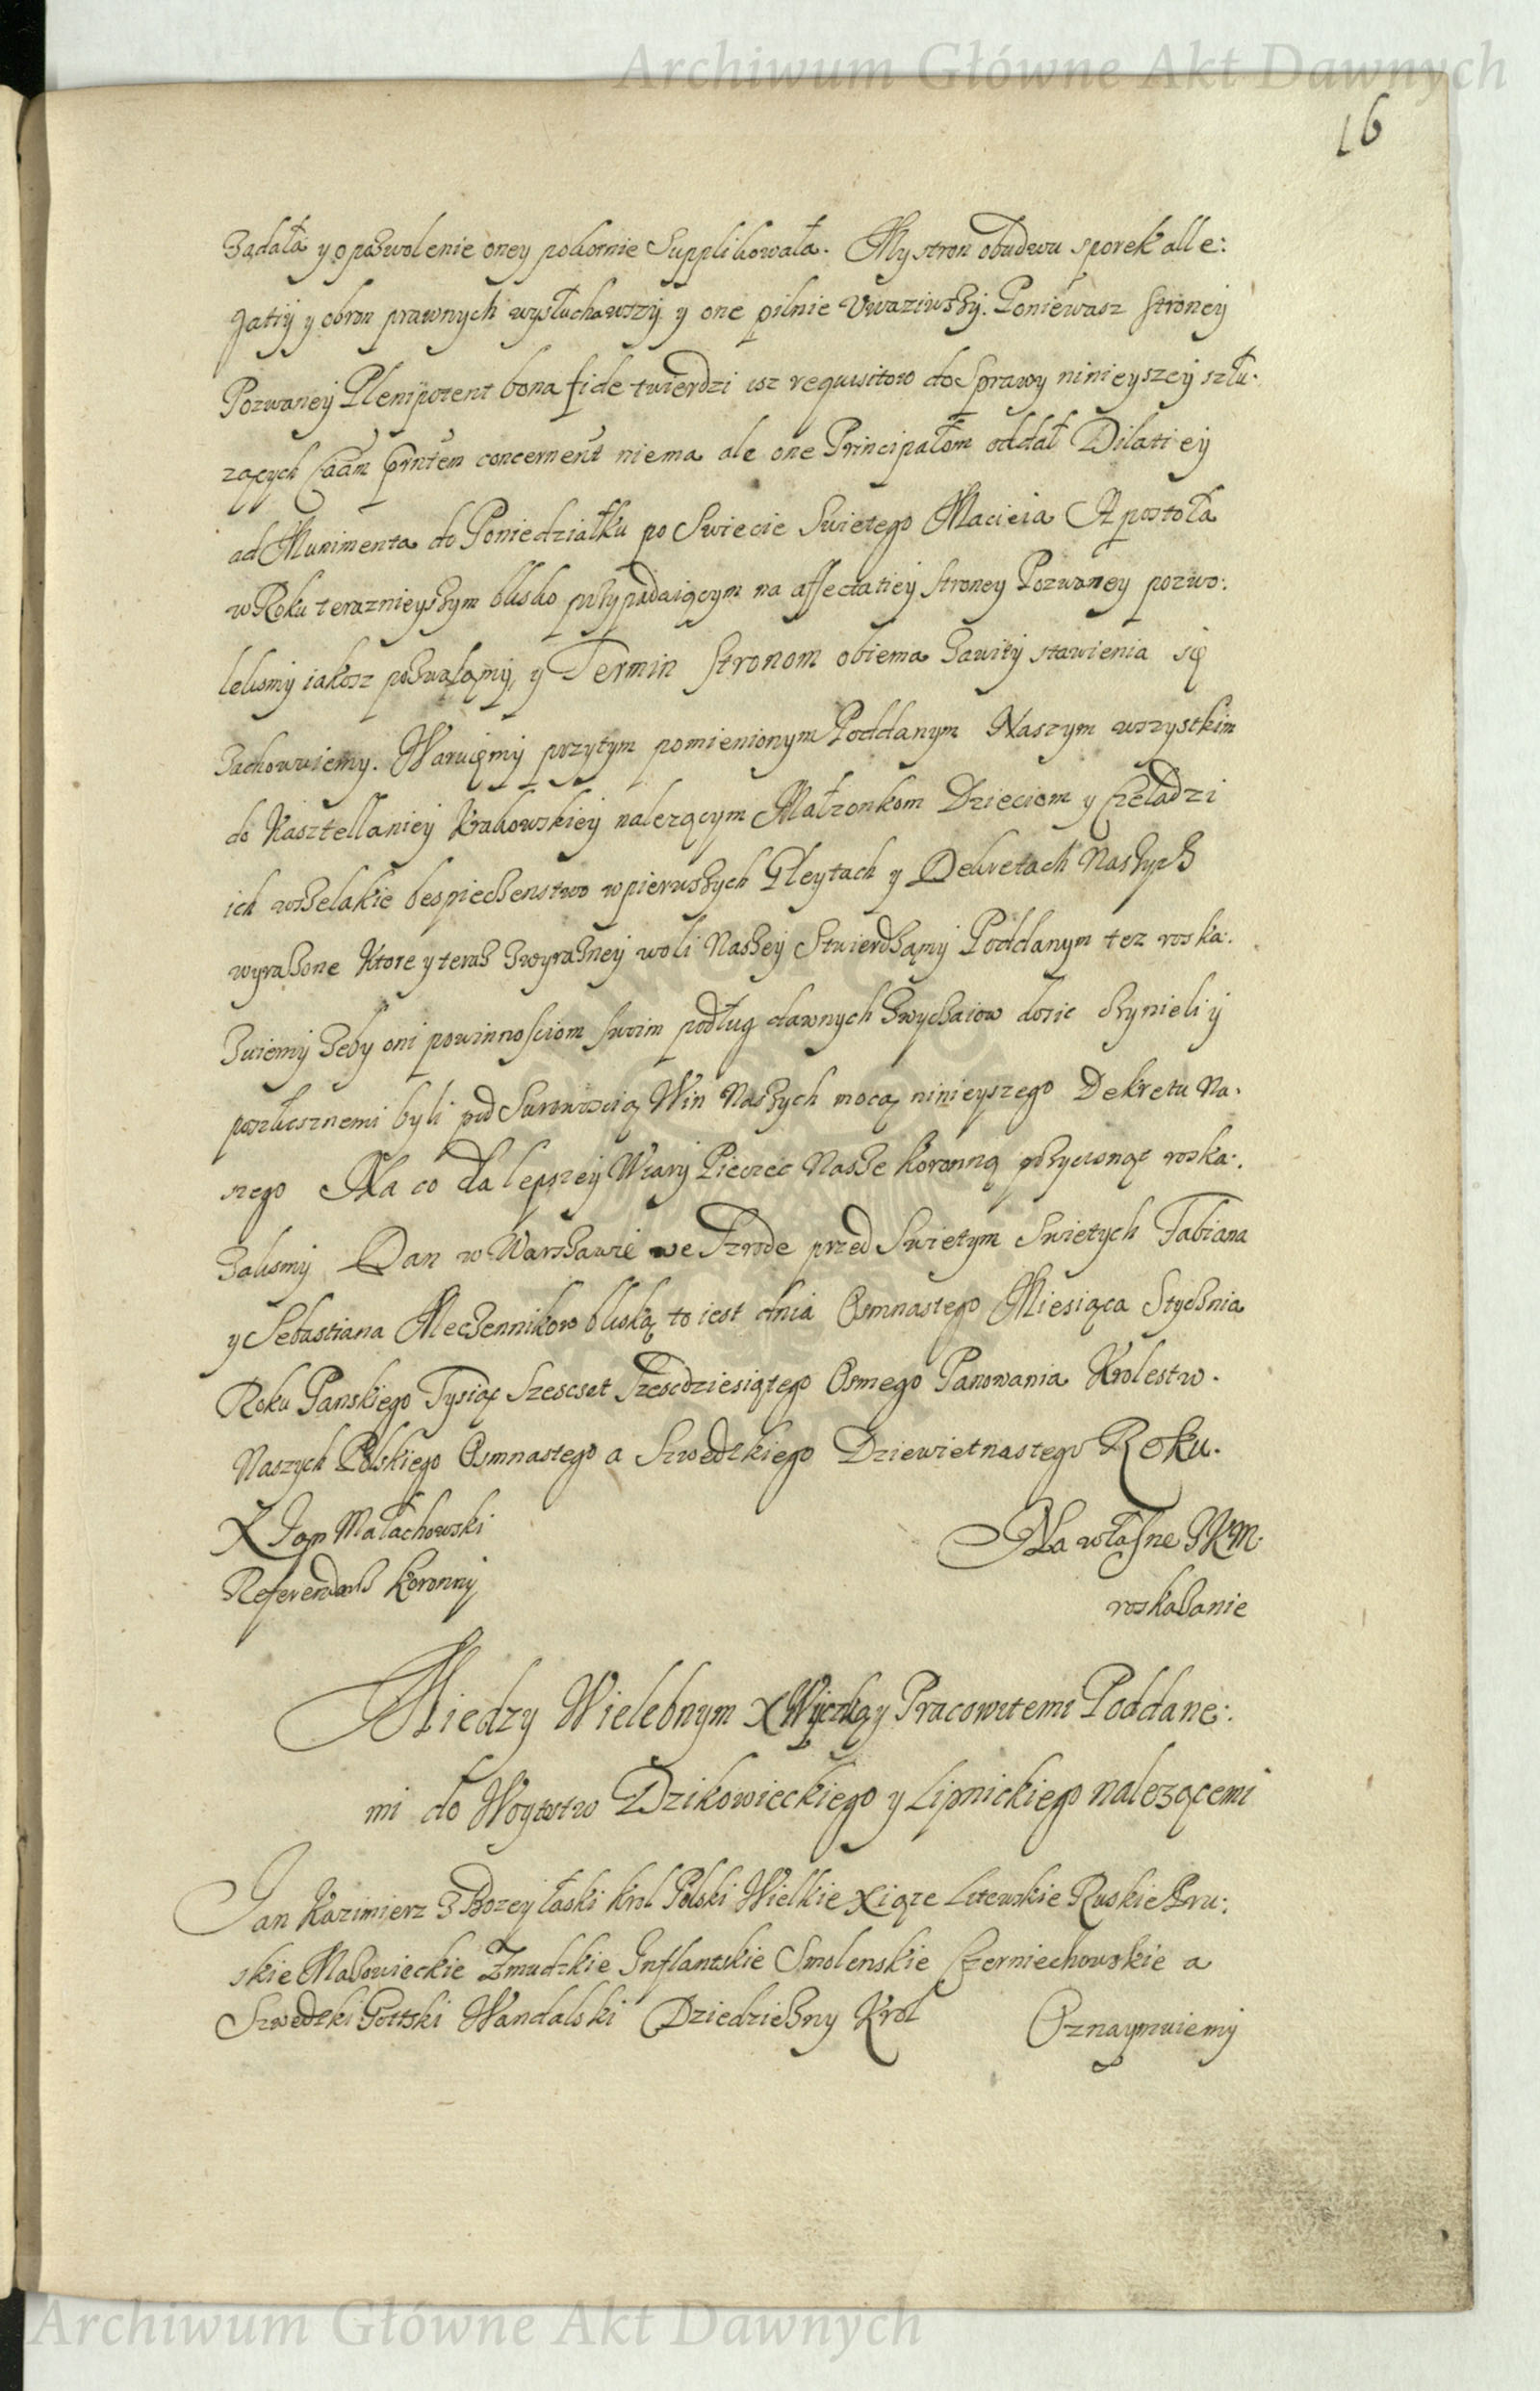 Archiwum Główne Akt Dawnych
16
żądała y o pozwolenie oney pokornie Supplikowała. My stron obudwu sporek alle:
gatiÿ y obron prawnych wysłuchawszÿ y one pilnie Vwaziwszÿ. Poniewasz stroneÿ
Pozwaneÿ Plenipotent bona fide twierdzi isz requisitow do Sprawy ninieyszeÿ szłu:
zących concernent niema ale one Principałom oddał Dilatieÿ
ad Munimenta do Poniedziałku po Swiecie Swietego Macieia Apostoła
w Roku teraznieyszym blisko przypadaiącym na affectatieÿ Stroney Pozwaney pozwo:
lelismÿ iakosz pozwalamÿ, y Termin Stronom obiema zawitÿ stawienia się
zachowuiemy. Waruiemÿ przytym pomienionym Poddanym Naszym wszystkim
do Kasztellanieÿ Krakowskieÿ nalezącym Małzonkom Dzieciom y Czeladzi
ich wszelakie bespieczenstwo w pierwszych Gleytach y Dekretach Naszych
wyrazone Ktore y teraz z wyrazneÿ woli Naszeÿ Stwierdzamÿ Poddanym tez roska:
zuiemÿ zeby oni powinnosciom swoim podług dawnych zwyczaiow dosic czynieli ÿ
poszłusznemi byli pod Surowoscią Win Naszych mocą ninieyszego Dekretu Na:
szego Na co dla lepszeÿ Wiarÿ Pieczec Nasze koronną przycisnąc roska:
zalismÿ Dan w Warszawie we Szrode przed Swietym Swietych Fabiana
y Sebastiana Meczennikow bliską to iest dnia Osmnastego Miesiąca Stycznia
Roku Panskiego Tysiąc Szescset Szescdziesiątego Osmego Panowania Krolestw.
Naszych Polskiego Osmnastego a Szwedzkiego Dziewietnastego Roku.
X Jan Małachowski
Referendarz Koronnÿ
Na własne JKM.
roskazanie
Miedzy Wielebnym X y Pracowitemi Poddane:
mi do Woytostw Dzikowieckiego y Lipnickiego nalezącemi
Jan Kazimierz z Bozey łaski Krol Polski Wielkie Xiąze Litewskie Ruskie Pru:
skie Mazowieckie Zmudzkie Inflantskie Smolenskie Czerniechowskie a
Szwedzki Gottski Wandalski Dziedziczny Krol Oznaymuiemÿ
Archiwum Główne Akt Dawnych